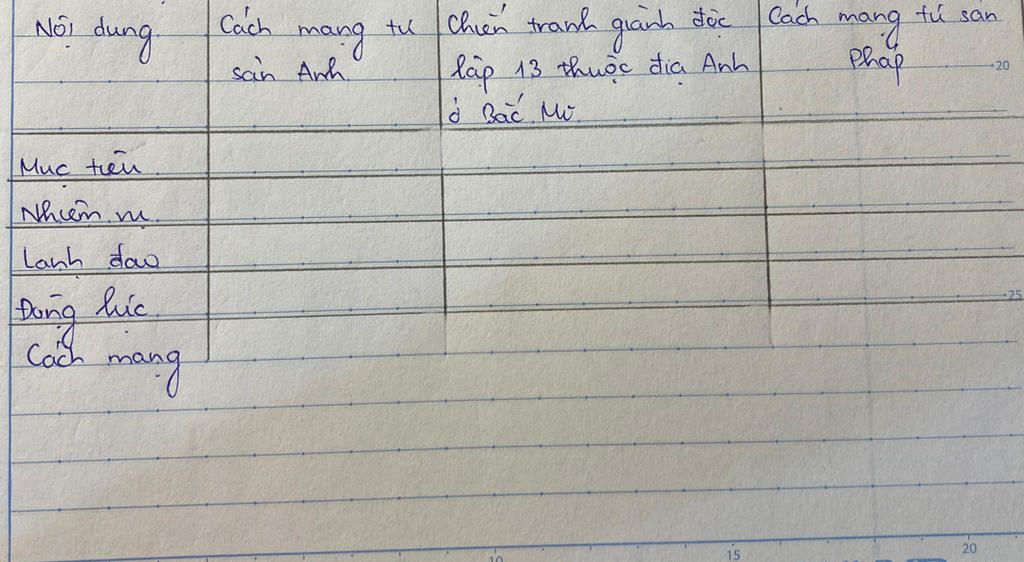 Nội dung
Cách mạng tư
sản Anh
Chiến tranh giành độc
lập 13 thuộc địa Anh
ở Bắc Mĩ
Cách mạng tư sản
Pháp
Mục tiêu
Nhiệm vụ
Lãnh đạo
Động lực
Cách mạng
20
25
10
15
20